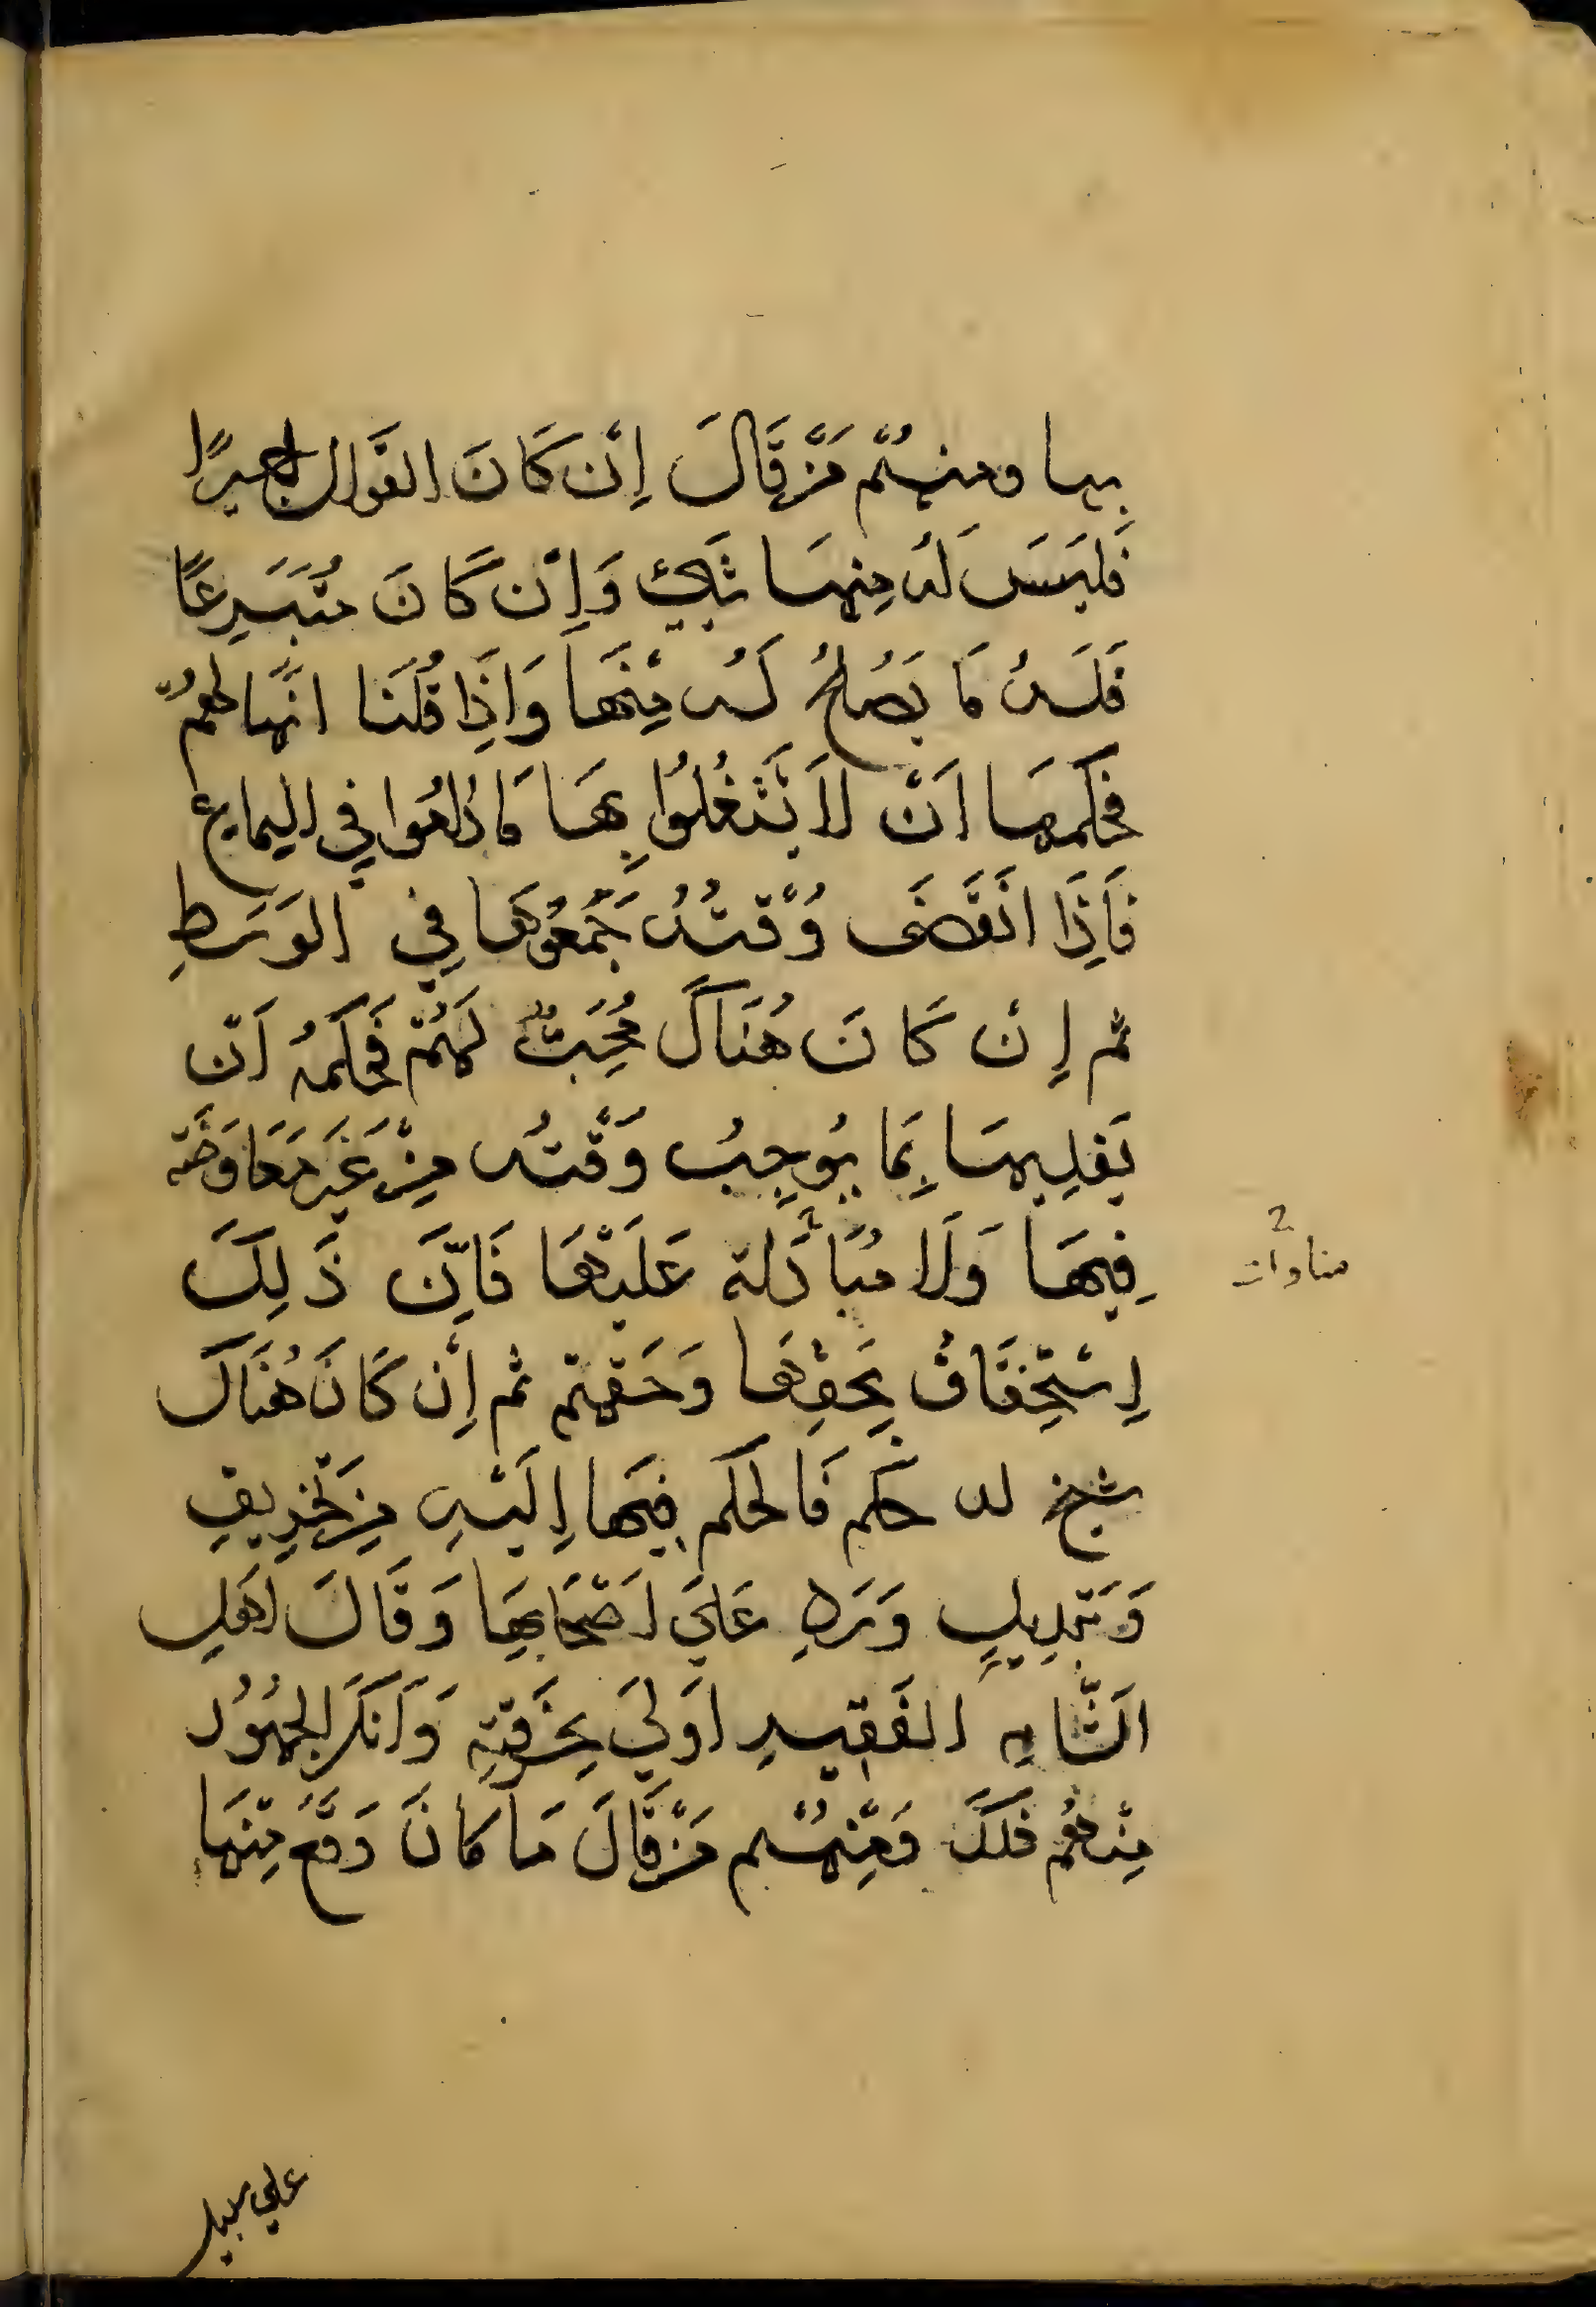 بِها ومنهُم مَن قَالَ إِن كَانَ القَوال اجيرًا
فَليَسَ لَهُ مِنهَا شَيْ وَإِن كَانَ مُتَبَرِعًا
فَلَهُ مَا يَصلُحُ لَهُ مِنهَا وَإِذَا قُلنَا انَّها لهُم
فحكمهَا اَن لَا يَشتَغُلُوا بِهَا مَا دَامُوا في السماع
فَإِذَا انقَضَى وَقتُهُ جَمَعُوهَا في الوَسَطِ
ثم إِن كَانَ هُنَاكَ مُحِبٌّ لَهُم فَحكمهُ اَن
يَفدِيهَا بِمَا يُوجِبُ وَقتُهُ مِن غَيرِ مُعَاوَضَة
فِيهَا وَلَا مُبَادَلة عَلَيهَا فَإِنَّ ذَلِكَ
إِستِخفَافٌ بِحَقِهَا وَحَقهِم ثم إِن كَانَ هُنَاكَ
شيخ له حكم فَالحكم فِيهَا إِلَيهِ مِن تَخرِيقِ
وَتَبدِيلٍ وَرَدٍ عَلَى أَصحَابِهَا وَقَالَ أَهل
الشَّامِ الفَقِيرِ اولَى بِخرقَتِهِ وَأَنكَرَ الجمهُور
مِنهُم ذلكَ وَمِنهُم مَن قَالَ مَا كَانَ وَقَعَ مِنهَا
2
مناواة
علي سبيل